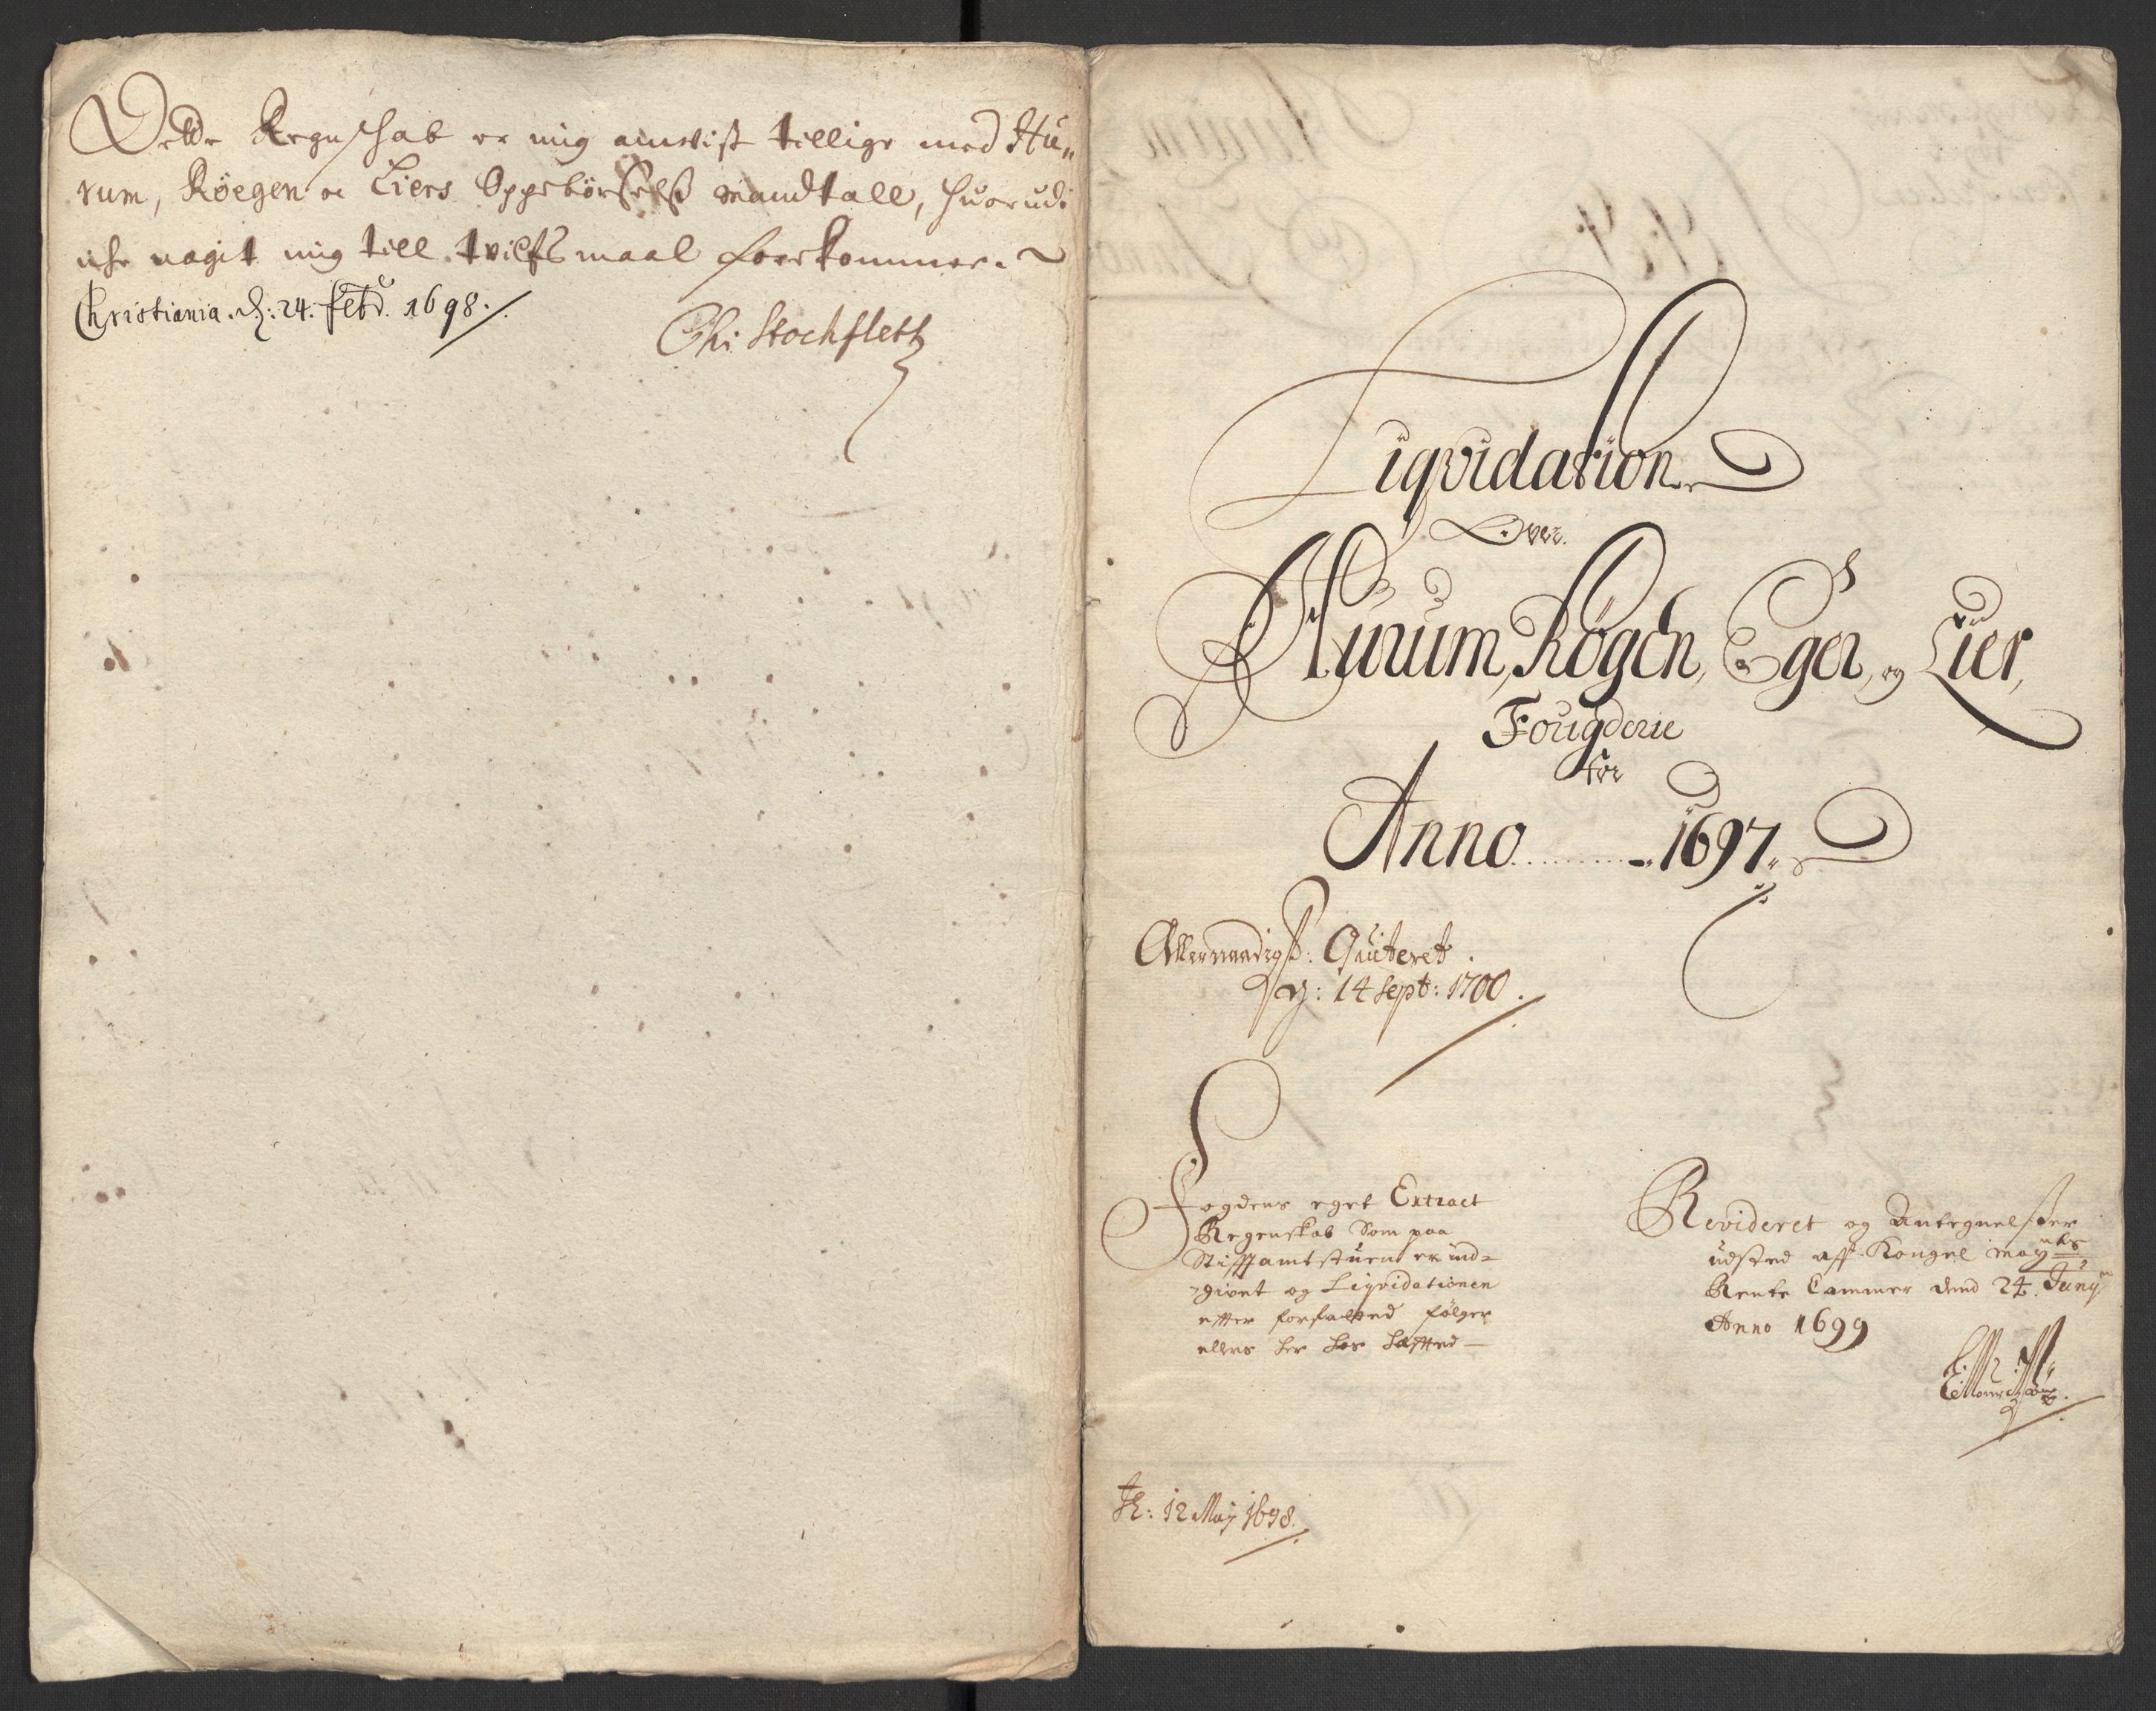 Dette Regnschab er mig anvist tillige med Hu„
rum, Röegen oc Liers Oppebörsels mandtall, huorudi
iche nogit mig till tvilfsmaal foerkommer.
Christiania. d: 24. febr. 1698.
Chr Stockfleth
Liqvidation
Over
Hurum, Rögen, Eger, og Lier,
Fougderie
for
Anno 1697.
Allernaadigst: Qviteret
d: 14 Sept: 1700.
Fogdens eget Extract
Regenskab Som paa
Stifftamtstuen er ind-
givet og Liqvidationen
efter forfatted følger
ellers her hos heffted
Revideret og Antegnelser
udsted aff Kongel may.tts
Rente Cammer dend 24. Juny
Anno 1699
12 May 1698.